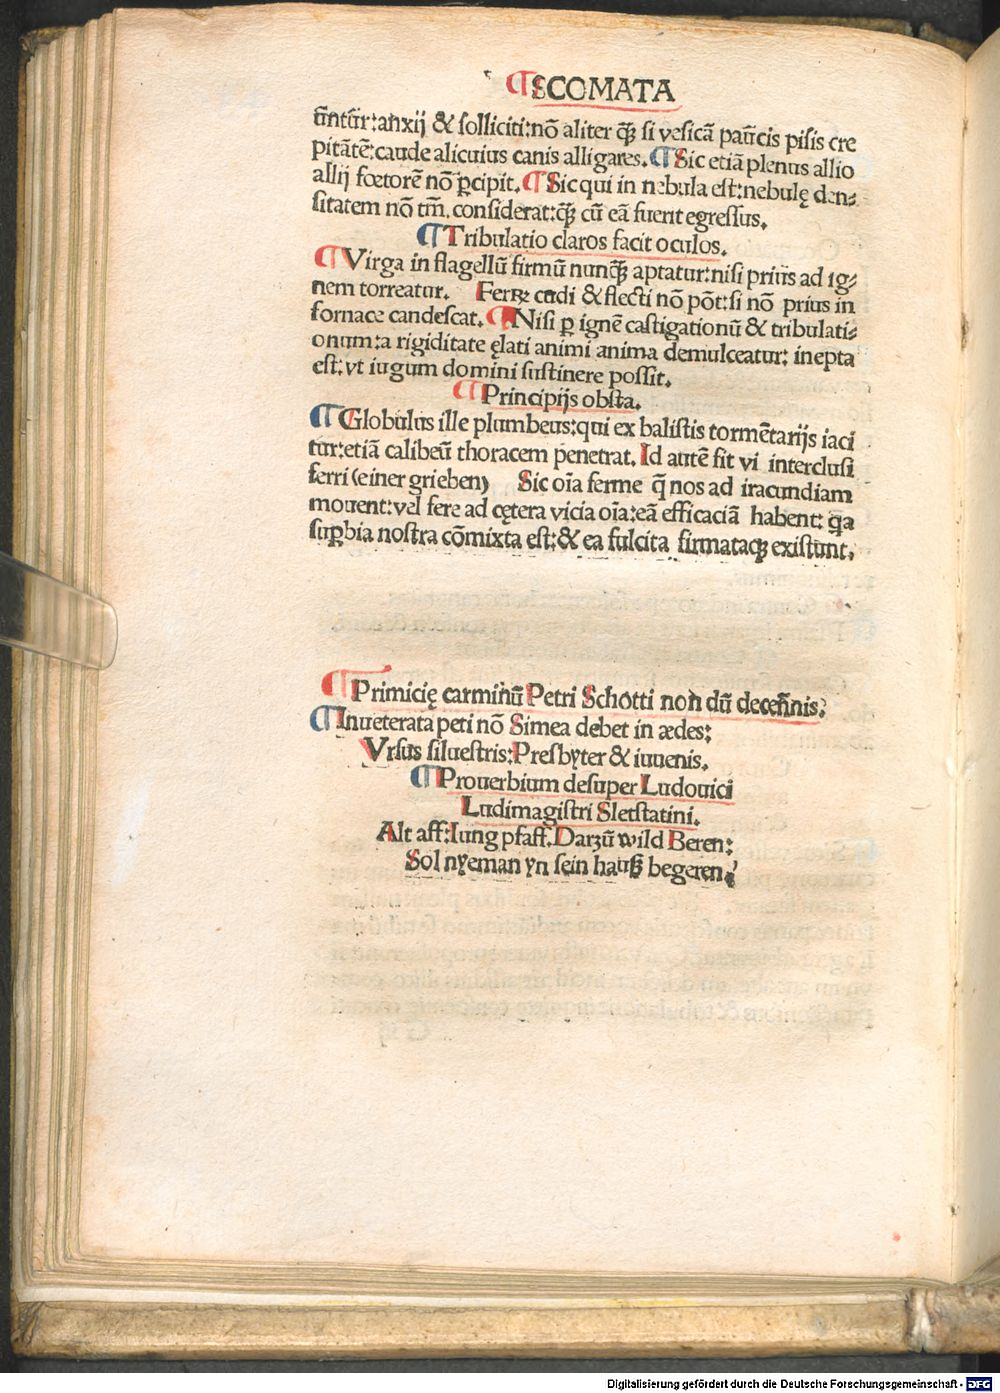 ¶SCOMATA
ūntūr:anxij & solliciti:nō aliter q̄ꝫ si vesicā paūcis pisis cre
pitātē:caude alicuius canis alligares.¶Sic etiā plenus allio
allij fœtorē nō ꝑcipit.¶Sic qui in nebula est:nebulę den⸗
sitatem nō tm̄. considerat:q̄ꝫ cū eā fuerit egressus.
¶Tribulatio claros facit oculos.
¶Virga in flagellū firmū nunq̄ꝫ aptatur:nisi prius ad ig⸗
nem torreatur. Ferꝝ cudi & flecti nō pōt:si nō prius in
fornace candescat.¶Nisi ꝑ ignē castigationū & tribulati⸗
onum:a rigiditate ęlati animi anima demulceatur: inepta
est:vt iugum domini sustinere possit.
¶Principijs obsta.
¶Globulus ille plumbeus:qui ex balistis tormētarijs iaci
tur:etiā calibeū thoracem penetrat. Id autē fit vi interclusi
ferri (einer grieben) Sic oīa ferme q̄ nos ad iracundiam
mouent:vel fere ad cętera vicia oīa:eā efficaciā habent: q̄a
suꝑbia nostra cōmixta est:& ea fulcita firmataqꝫ existunt.
¶Primicię carminū Petri Schotti non dū decēnis:
¶Inueterata peti nō Simea debet in ædes:
Vrsus siluestris:Presbyter & iuuenis.
¶Prouerbium desuper Ludouici
Ludimagistri Sletstatini.
Alt aff:Iung pfaff.Darzū wild Beren:
Sol nyeman yn sein hauß begeren.
Digitalisierung gefördert durch die Deutsche Forschungsgemeinschaft - DFG